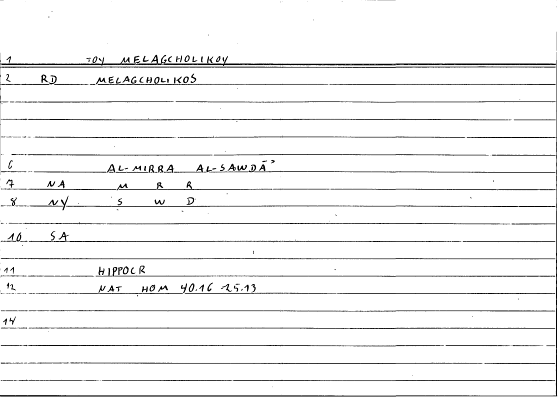 1 TOY MELAGCHOLIKOY
2 RD MELAGCHOLIKOS
6 AL-MIRRA AL-SAWDĀʾ
7 NA M R R
8 NY S W D
10 SA
11 HIPPOCR
12 NAT HOM 40.16 25.13
14